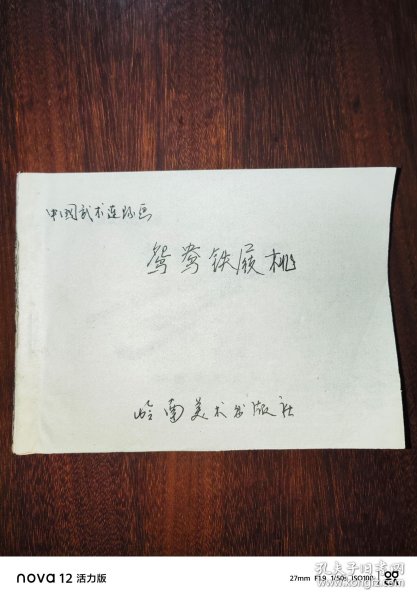 中国武术连环画
鸳鸯铁屐桃
岭南美术出版社
nova 12 活力版
27mm F1.9 1/50s ISO100
孔夫子旧书网
www.kongfz.com